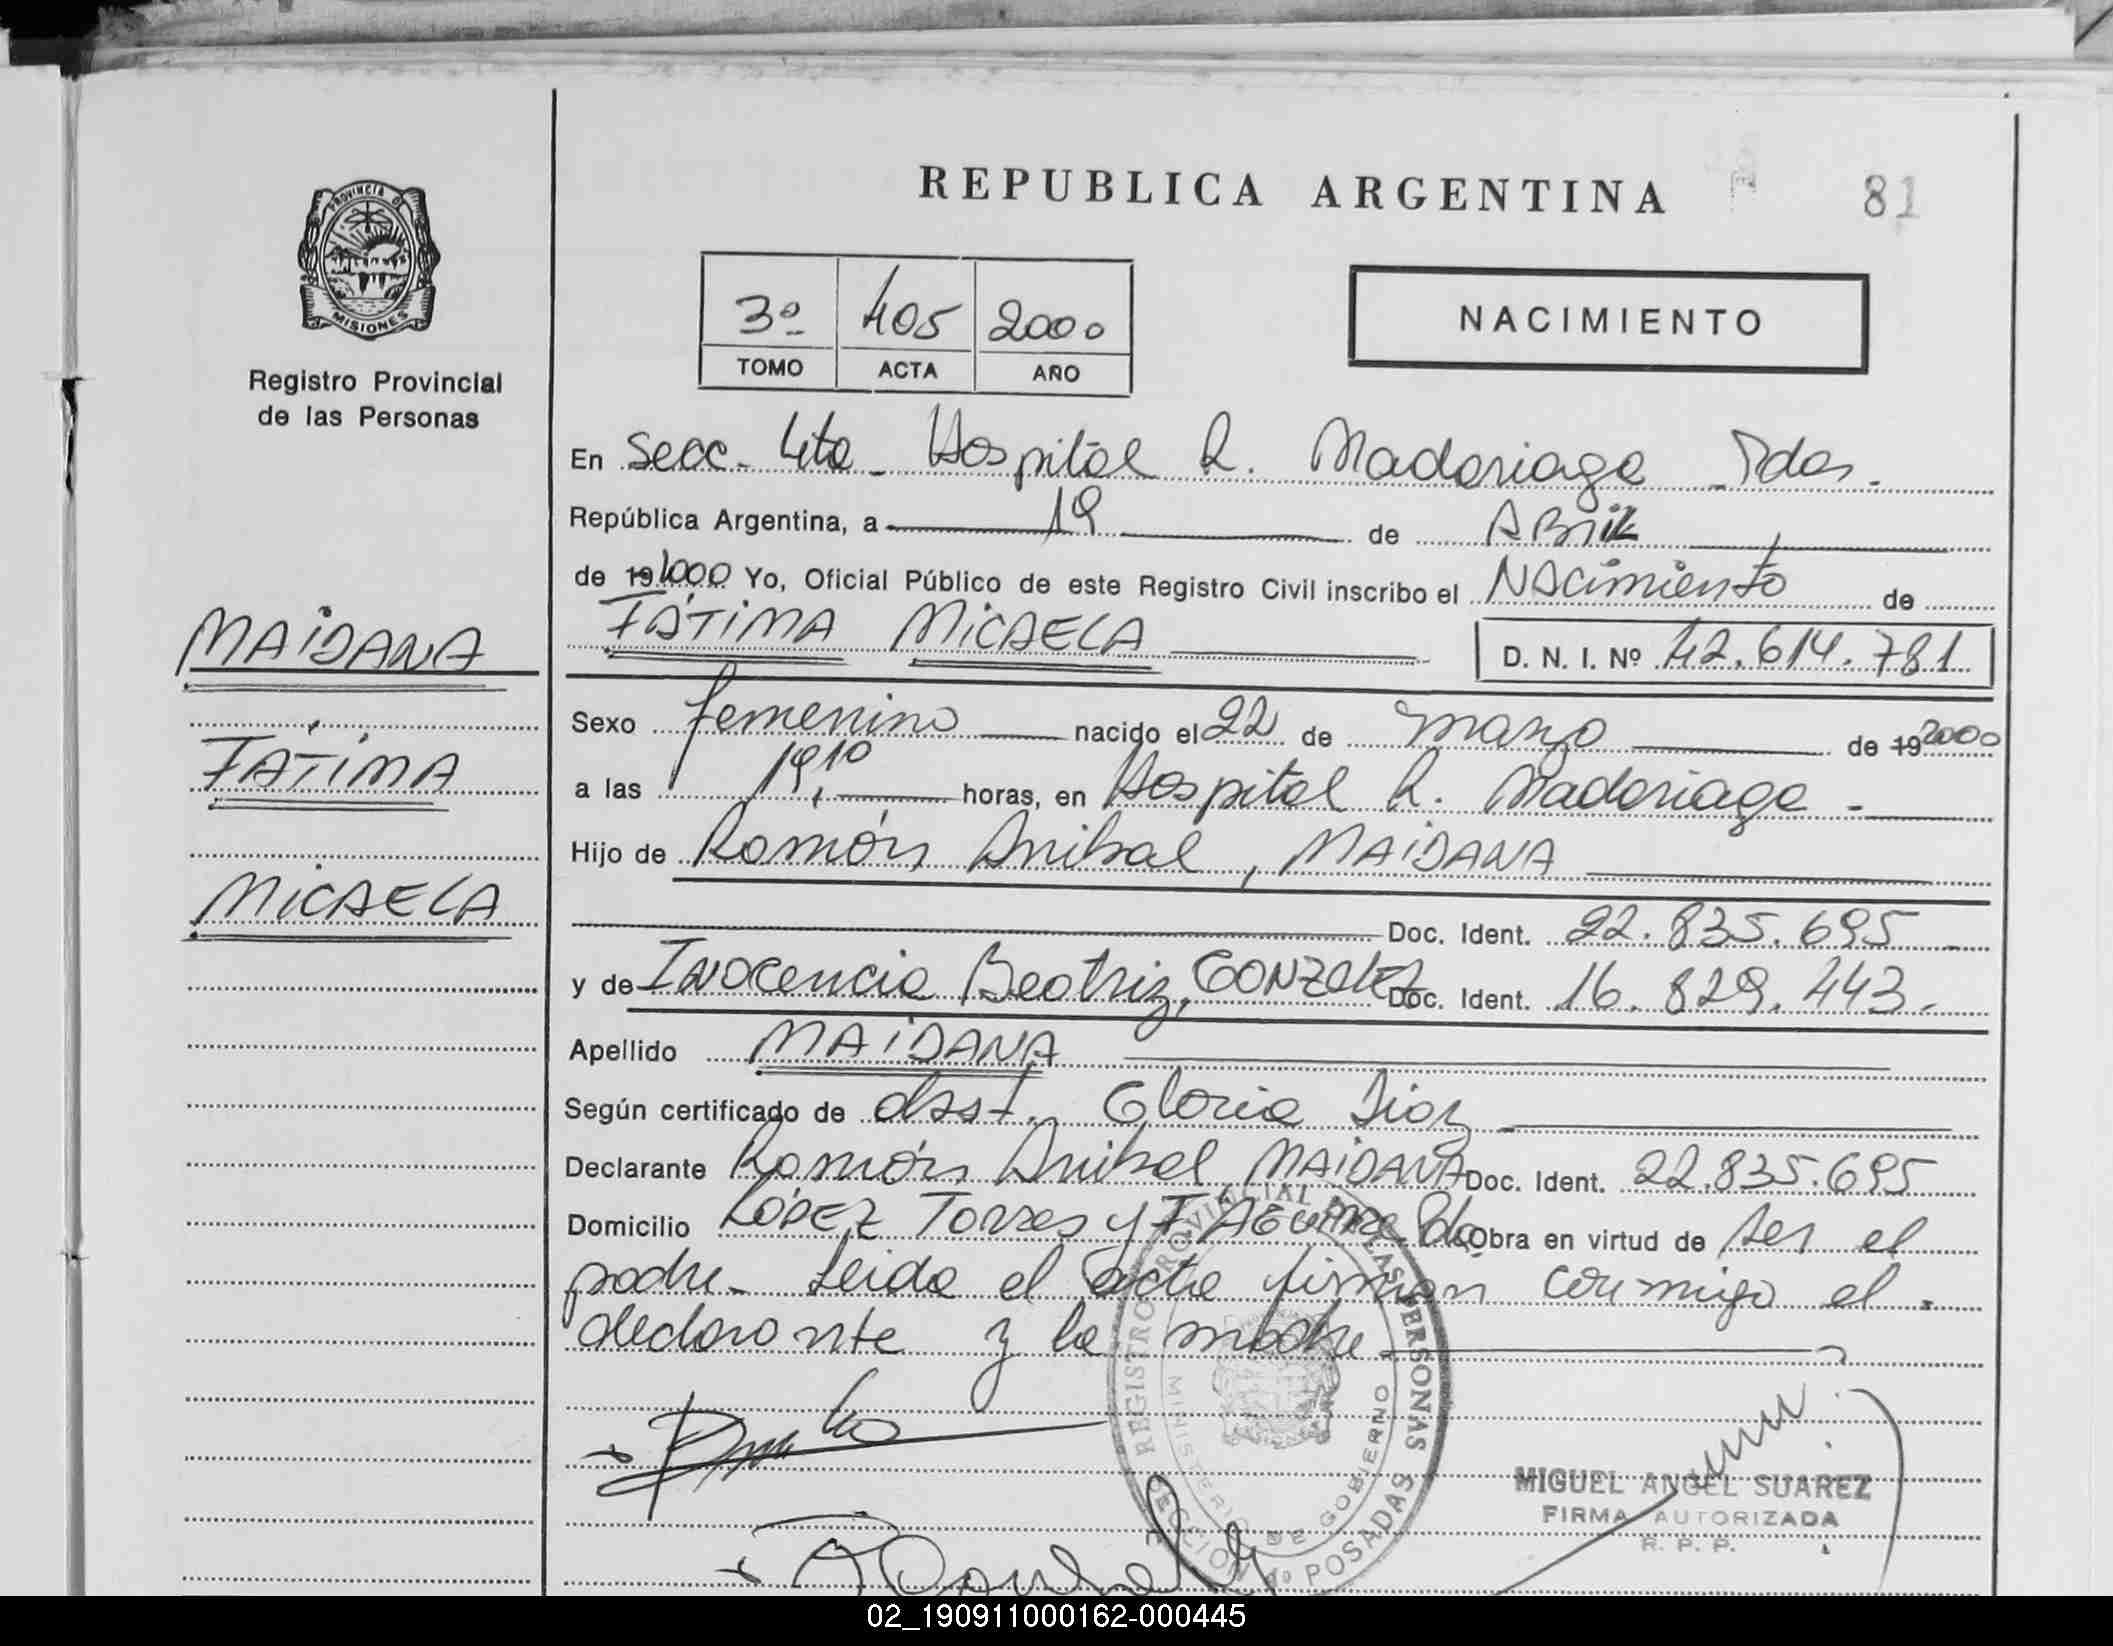 REPUBLICA ARGENTINA
81
PROVINCIA D
MISIONES
Registro Provincial
de las Personas
3º 405 2000
TOMO ACTA AÑO
NACIMIENTO
En Secc. 4ta - Hospital R. Madariaga - Pdas.
República Argentina, a 19 de ABRIL
de 19 2000 Yo, Oficial Público de este Registro Civil inscribo el Nacimiento de
FÁTIMA MICAELA D. N. I. Nº 42.614.781
MAIDANA
FÁTIMA
MICAELA
Sexo femenino nacido el 22 de marzo de 19 2000
a las 19,10 horas, en Hospital R. Madariaga -
Hijo de Ramón Anibal, MAIDANA
Doc. Ident. 22.835.695
y de Inocencia Beatriz, GONZALEZ Doc. Ident. 16.829.443.
Apellido MAIDANA
Según certificado de obst. Gloria Diaz
Declarante Ramón Anibal MAIDANA Doc. Ident. 22.835.695
Domicilio LÓPEZ Torres y F. AGUIRRE Pdas Obra en virtud de ser el
padre - Leida el acta firman conmigo el
declarante y la madre
REGISTRO PROVINCIAL DE LAS PERSONAS
MINISTERIO DE GOBIERNO
SECCION 4º POSADAS
MIGUEL ANGEL SUAREZ
FIRMA AUTORIZADA
R. P. P.
02_190911000162-000445